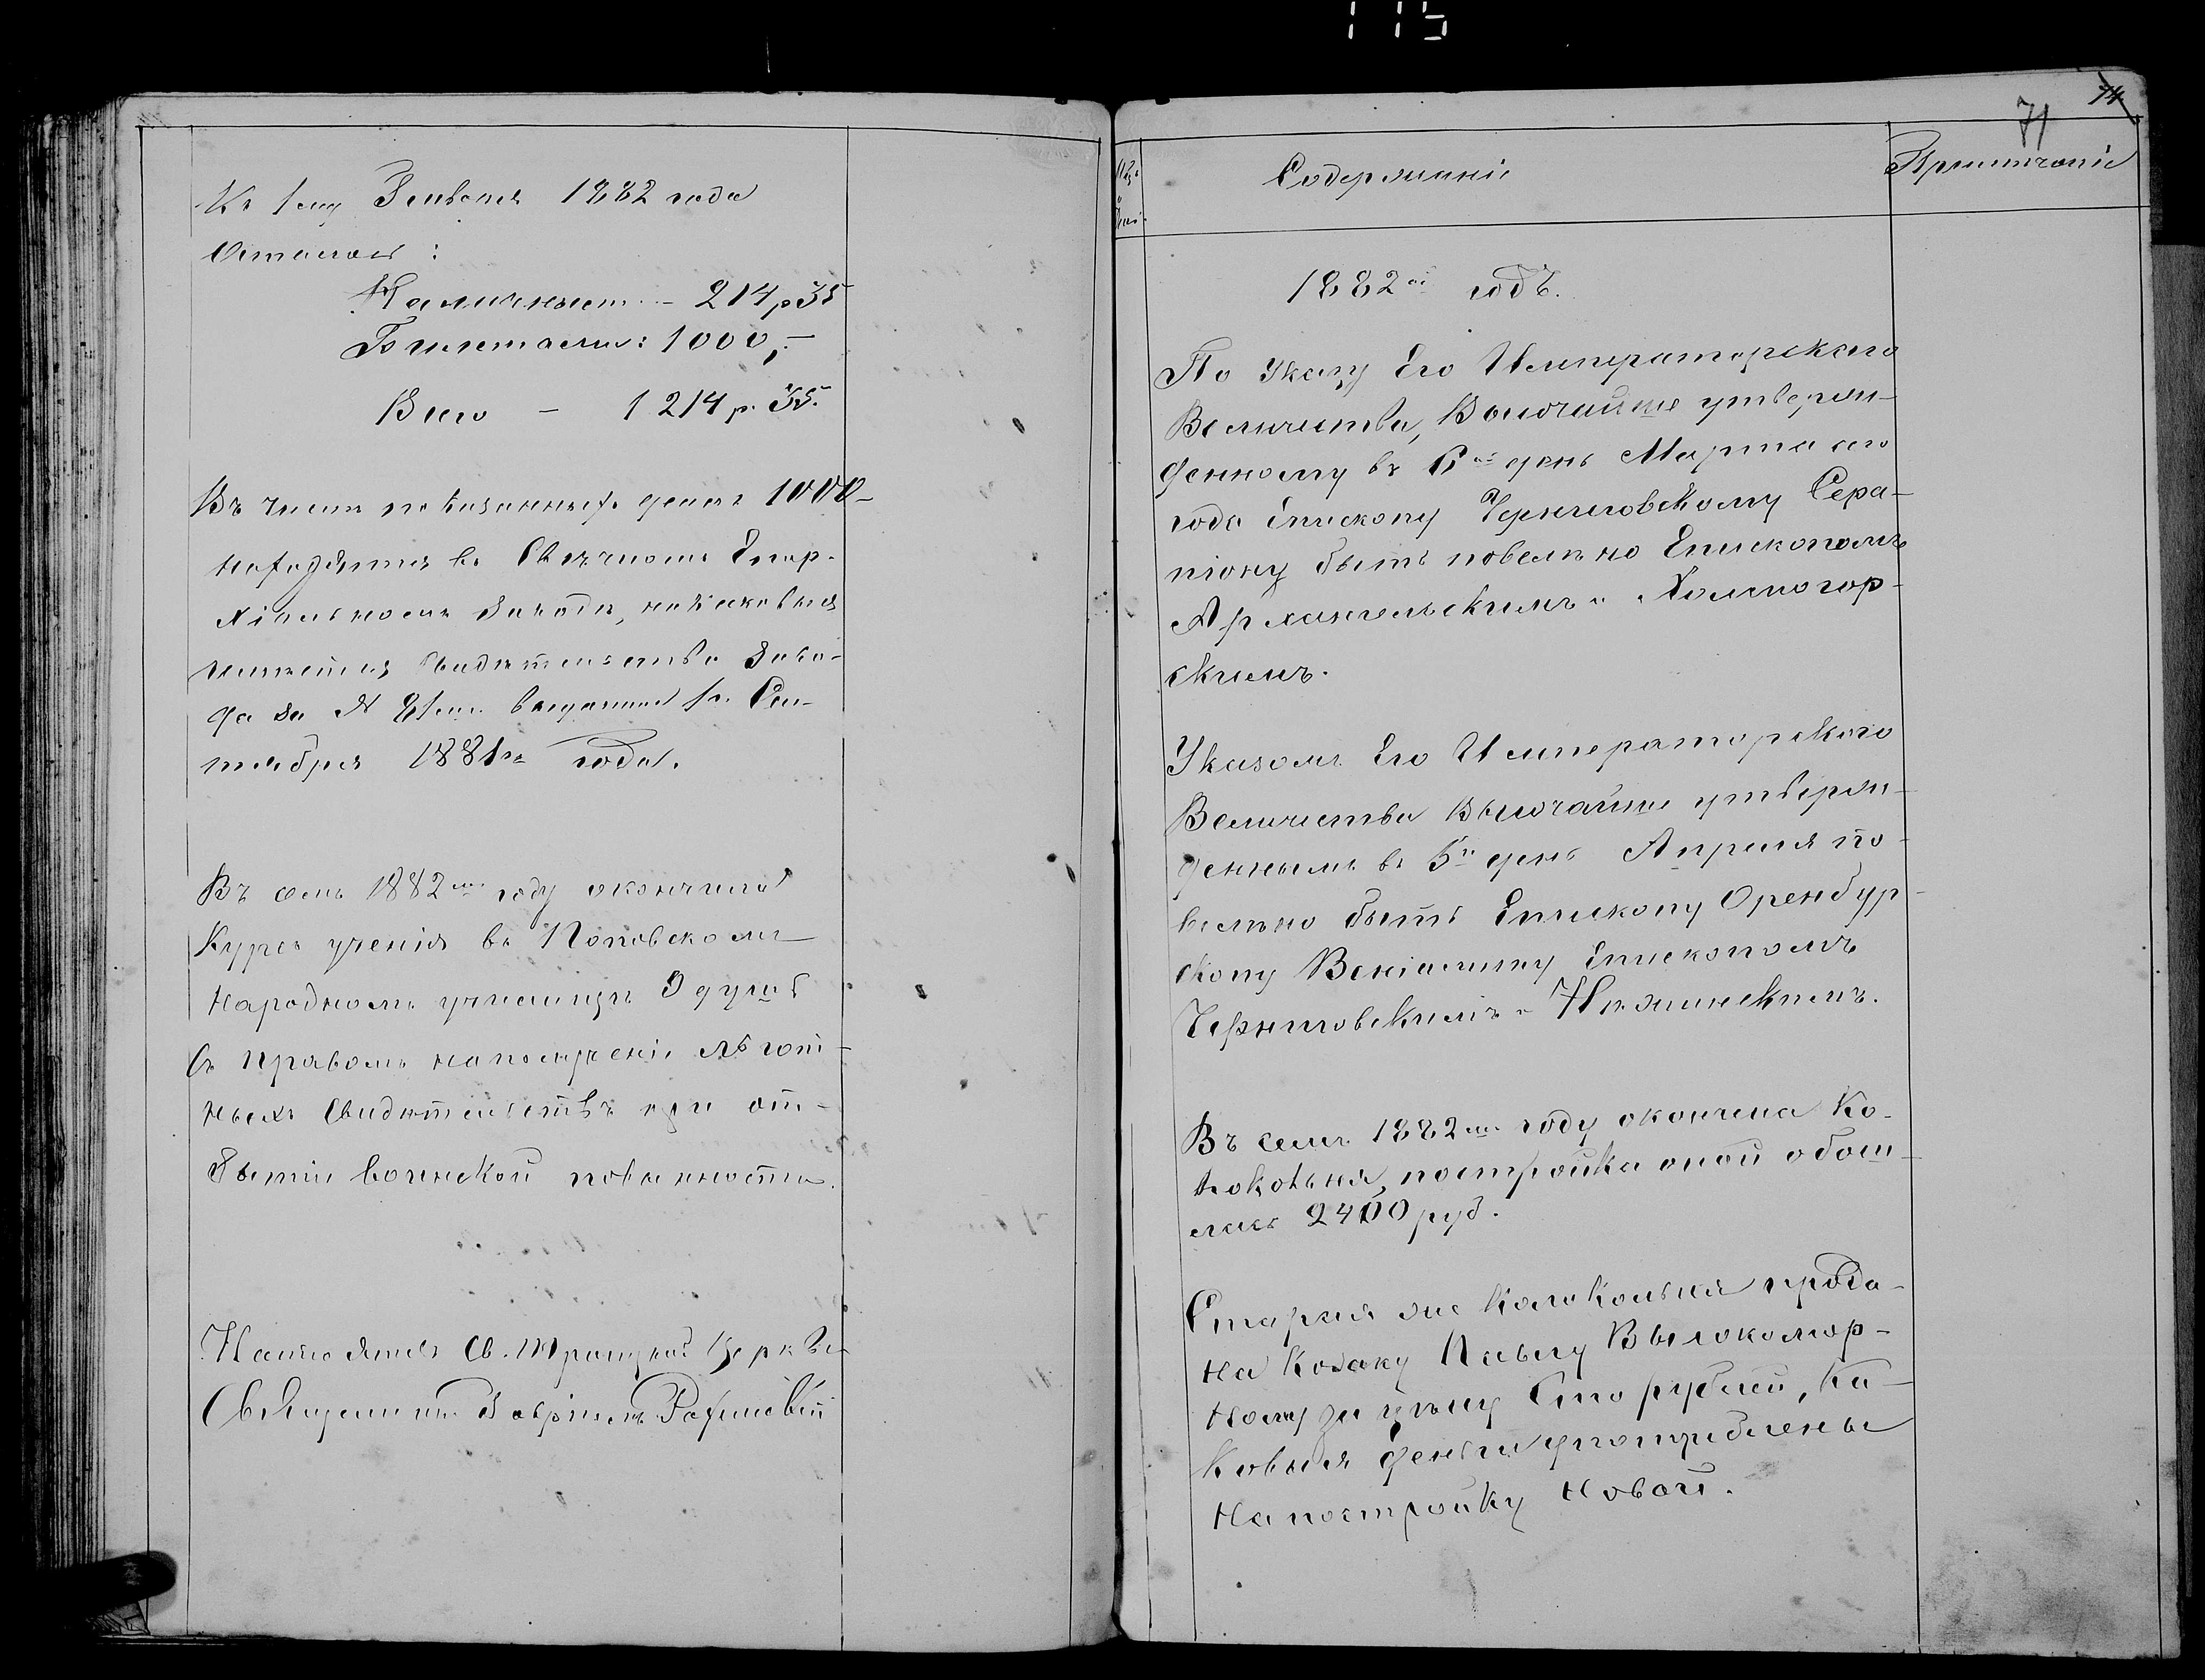 115
Къ 1ому Января 1882 года
Осталось:
Наличными - 214 р 35
Билетами: 1000,-
Всего - 1214 р. 35.
Въ числѣ показанныхъ денегъ 1000-
находятся въ Свѣчномъ Епар-
хіальномъ Заводѣ, на каковыя
имѣется свидѣтельство Заво-
да за № 81мъ выданное 1го Сен-
тября 1881го года.
Въ семъ 1882мъ году окончило
Курсъ ученія въ Поповскомъ
Народномъ училищѣ 9 душъ
Съ правомъ на полученіе льгот-
ныхъ свидѣтельствъ при от-
бытіи воинской повинности.
Настоятель Св. Троицкой Церкви
Священникъ Гавріилъ
71
74
Содержаніе
Примѣчаніе
1882й годъ.
По Указу Его Императорскаго
Величества, Высочайше утверж-
денному въ 6й день Марта сего
года Епископу Черниговскому Сера-
піону быть повелѣно Епископомъ
Архангельскимъ и Холмогор-
скимъ.
Указомъ Его Императорскаго
Величества Высочайше утверж-
деннымъ въ 5й день Апрѣля по-
велѣно быть Епископу Оренбур-
скому Веніамину Епископомъ
Черниговскимъ и Нѣжинскимъ.
Въ семъ 1882мъ году окончена Ко-
локольня, постройка оной обош-
лась 2400 руб.
Старая же Колокольня прода-
на Козаку Павлу Высокомор-
ному за цѣну Сто рублей, Ка-
ковыя деньги употреблены
На постройку Новой.